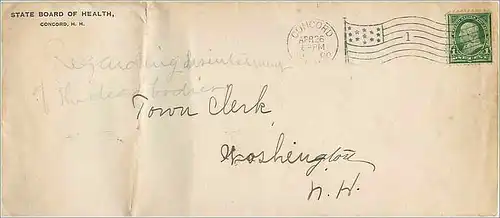 STATE BOARD OF HEALTH,
CONCORD, N. H.
CONCORD
APR 26
6-PM
1
regarding disinterring
of the dead bodies
Town Clerk
Washington
N. H.